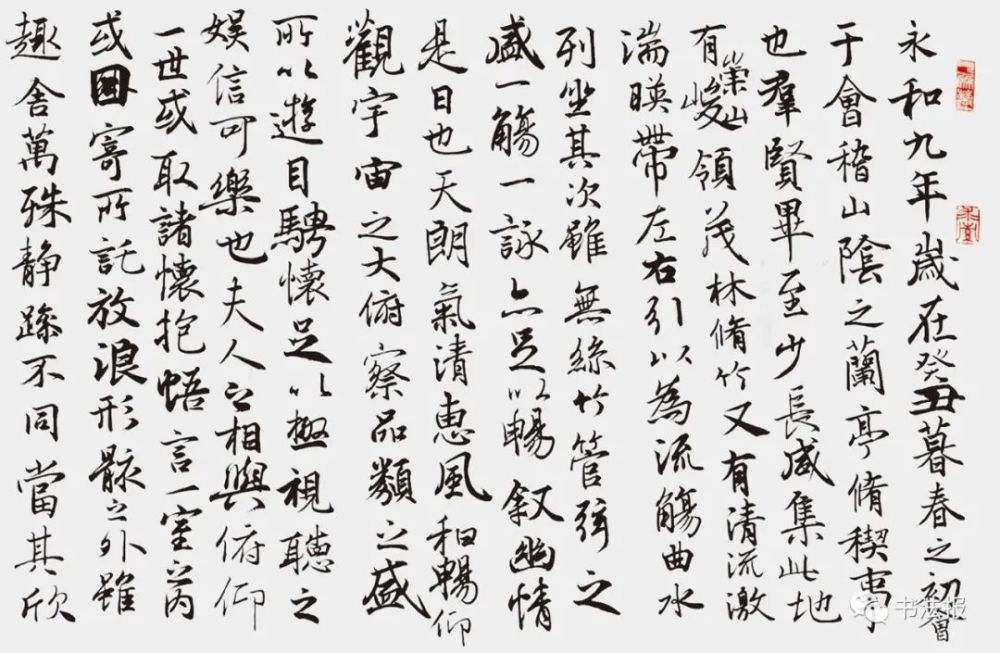 永和九年歲在癸丑暮春之初會
于會稽山陰之蘭亭脩稧事
也羣賢畢至少長咸集此地
有崇山峻領茂林脩竹又有清流激
湍暎帶左右引以為流觴曲水
列坐其次雖無絲竹管弦之
盛一觴一詠亦足以暢叙幽情
是日也天朗氣清惠風和暢仰
觀宇宙之大俯察品類之盛
所以遊目騁懷足以極視聽之
娛信可樂也夫人之相與俯仰
一世或取諸懷抱悟言一室之內
或因寄所託放浪形骸之外雖
趣舍萬殊静躁不同當其欣
书法报